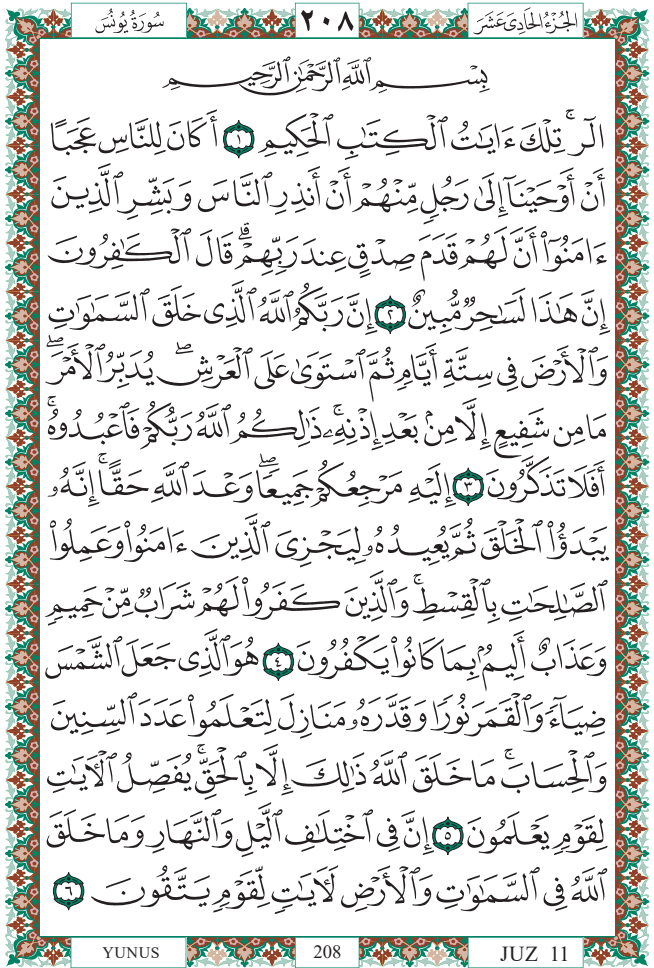 سُورَةُ يُونُسَ ٢٠٨ الجُزْءُ الحَادِي عَشَرَ
بِسْمِ ٱللَّهِ ٱلرَّحْمَٰنِ ٱلرَّحِيمِ
الٓر ۚ تِلْكَ ءَايَٰتُ ٱلْكِتَٰبِ ٱلْحَكِيمِ ١ أَكَانَ لِلنَّاسِ عَجَبًا
أَنْ أَوْحَيْنَآ إِلَىٰ رَجُلٍ مِّنْهُمْ أَنْ أَنذِرِ ٱلنَّاسَ وَبَشِّرِ ٱلَّذِينَ
ءَامَنُوٓا۟ أَنَّ لَهُمْ قَدَمَ صِدْقٍ عِندَ رَبِّهِمْ ۗ قَالَ ٱلْكَٰفِرُونَ
إِنَّ هَٰذَا لَسَٰحِرٌ مُّبِينٌ ٢ إِنَّ رَبَّكُمُ ٱللَّهُ ٱلَّذِى خَلَقَ ٱلسَّمَٰوَٰتِ
وَٱلْأَرْضَ فِى سِتَّةِ أَيَّامٍ ثُمَّ ٱسْتَوَىٰ عَلَى ٱلْعَرْشِ ۖ يُدَبِّرُ ٱلْأَمْرَ ۖ
مَا مِن شَفِيعٍ إِلَّا مِنۢ بَعْدِ إِذْنِهِۦ ۚ ذَٰلِكُمُ ٱللَّهُ رَبُّكُمْ فَٱعْبُدُوهُ ۚ
أَفَلَا تَذَكَّرُونَ ٣ إِلَيْهِ مَرْجِعُكُمْ جَمِيعًا ۖ وَعْدَ ٱللَّهِ حَقًّا ۚ إِنَّهُۥ
يَبْدَؤُا۟ ٱلْخَلْقَ ثُمَّ يُعِيدُهُۥ لِيَجْزِىَ ٱلَّذِينَ ءَامَنُوا۟ وَعَمِلُوا۟
ٱلصَّٰلِحَٰتِ بِٱلْقِسْطِ ۚ وَٱلَّذِينَ كَفَرُوا۟ لَهُمْ شَرَابٌ مِّنْ حَمِيمٍ
وَعَذَابٌ أَلِيمٌۢ بِمَا كَانُوا۟ يَكْفُرُونَ ٤ هُوَ ٱلَّذِى جَعَلَ ٱلشَّمْسَ
ضِيَآءً وَٱلْقَمَرَ نُورًا وَقَدَّرَهُۥ مَنَازِلَ لِتَعْلَمُوا۟ عَدَدَ ٱلسِّنِينَ
وَٱلْحِسَابَ ۚ مَا خَلَقَ ٱللَّهُ ذَٰلِكَ إِلَّا بِٱلْحَقِّ ۚ يُفَصِّلُ ٱلْـَٔايَٰتِ
لِقَوْمٍ يَعْلَمُونَ ٥ إِنَّ فِى ٱخْتِلَٰفِ ٱلَّيْلِ وَٱلنَّهَارِ وَمَا خَلَقَ
ٱللَّهُ فِى ٱلسَّمَٰوَٰتِ وَٱلْأَرْضِ لَءَايَٰتٍ لِّقَوْمٍ يَتَّقُونَ ٦
YUNUS 208 JUZ 11